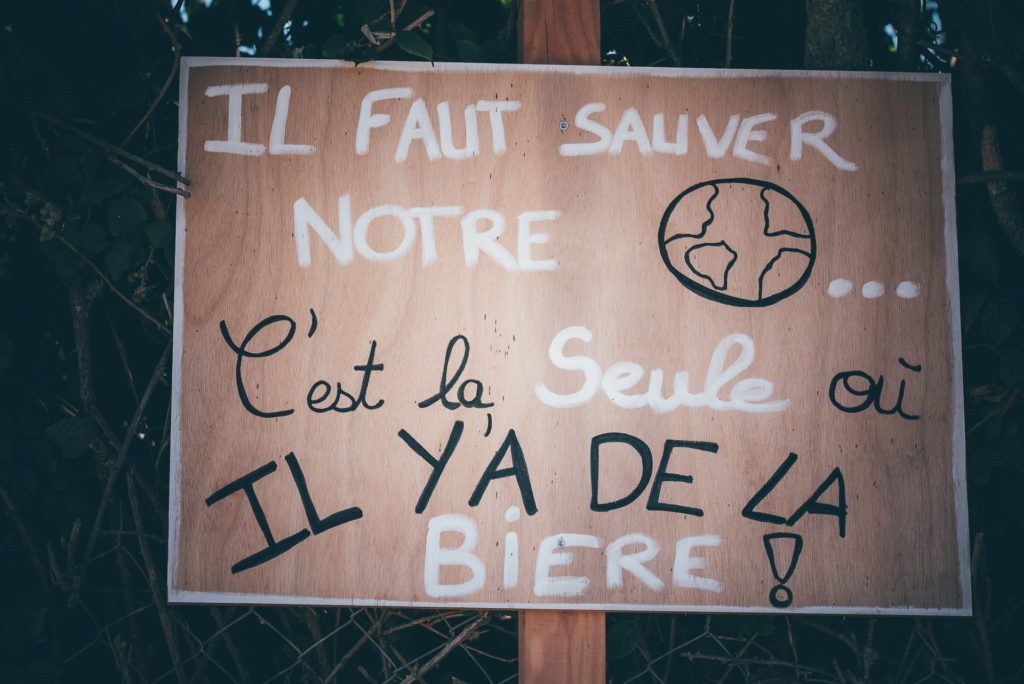 IL FAUT SAUVER
NOTRE ...
C'est la Seule où
IL Y'A DE LA
BiERE !